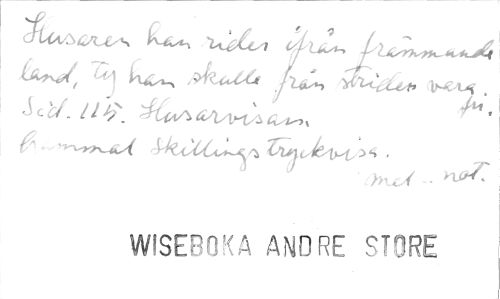 Husaren han rider ifrån främmande
land, ty han skulle från striden vara
fri.
Sid. 115. Husarvisan.
Gammal skillingstryckvisa.
mel... not.
WISEBOKA ANDRE STORE